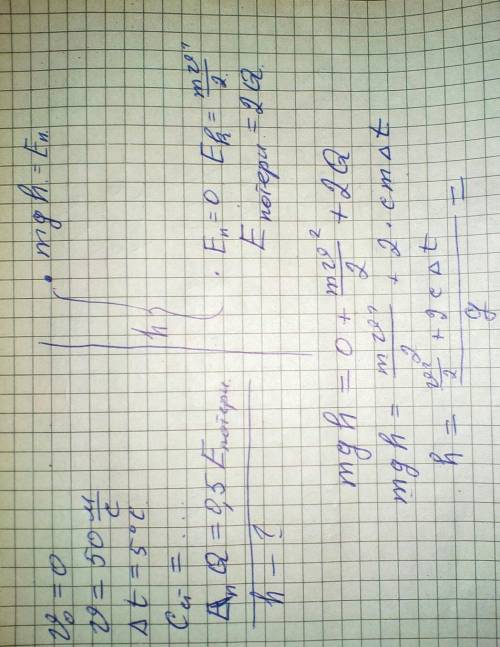 v₀ = 0
v = 50 м/с
Δt = 5°C
Q = 0,5 E потери
h - ?
mgh = Eп.
h
Eп = 0 Ek = mv²/2
E потери = 2Q
mgh = 0 + mv²/2 + 2Q
mgh = mv²/2 + 2·cmΔt
h = (v²/2 + 2cΔt)/g =